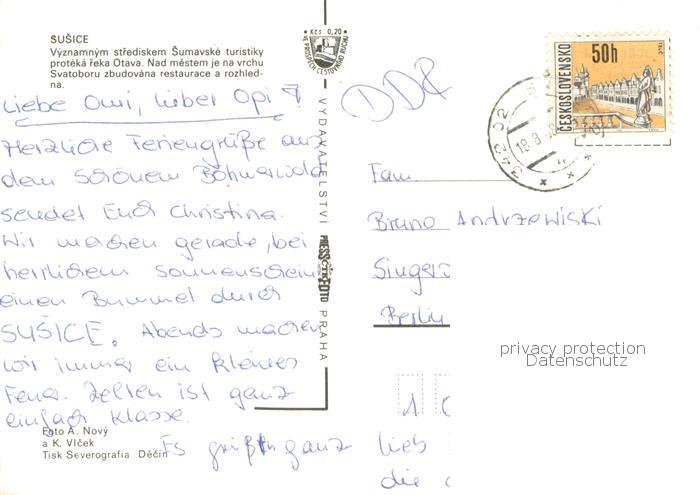 SUŠICE
Významným střediskem Šumavské turistiky
protéká řeka Otava. Nad městem je na vrchu
Svatoboru zbudována restaurace a rozhled-
na.
Liebe Omi, lieber Opi!
Herzliche Feriengrüße aus
dem schönen Böhmerwald
sendet Euch Christina.
Wir machen gerade, bei
herrlichem Sonnenschein
einen Bummel durch
SUŠICE. Abends machen
wir immer ein kleines
Feuer. Zelten ist ganz
einfach Klasse.
Es grüßt ganz lieb
die
Foto A. Nový
a K. Vlček
Tisk Severografia Děčín
Kčs 0,20
VE PROSPĚCH CESTOVNÍHO RUCHU
VYDAVATELSTVÍ PRESSFOTO PRAHA
ČTK
DDR
ČESKOSLOVENSKO
50h
TELČ
342 02
18.8.
Fam.
Bruno Andrzewiski
Singer
Berlin
1
privacy protection
Datenschutz